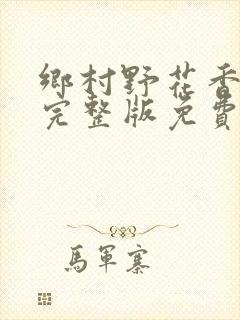 鄉村野花香
完整版免費
馬軍寨